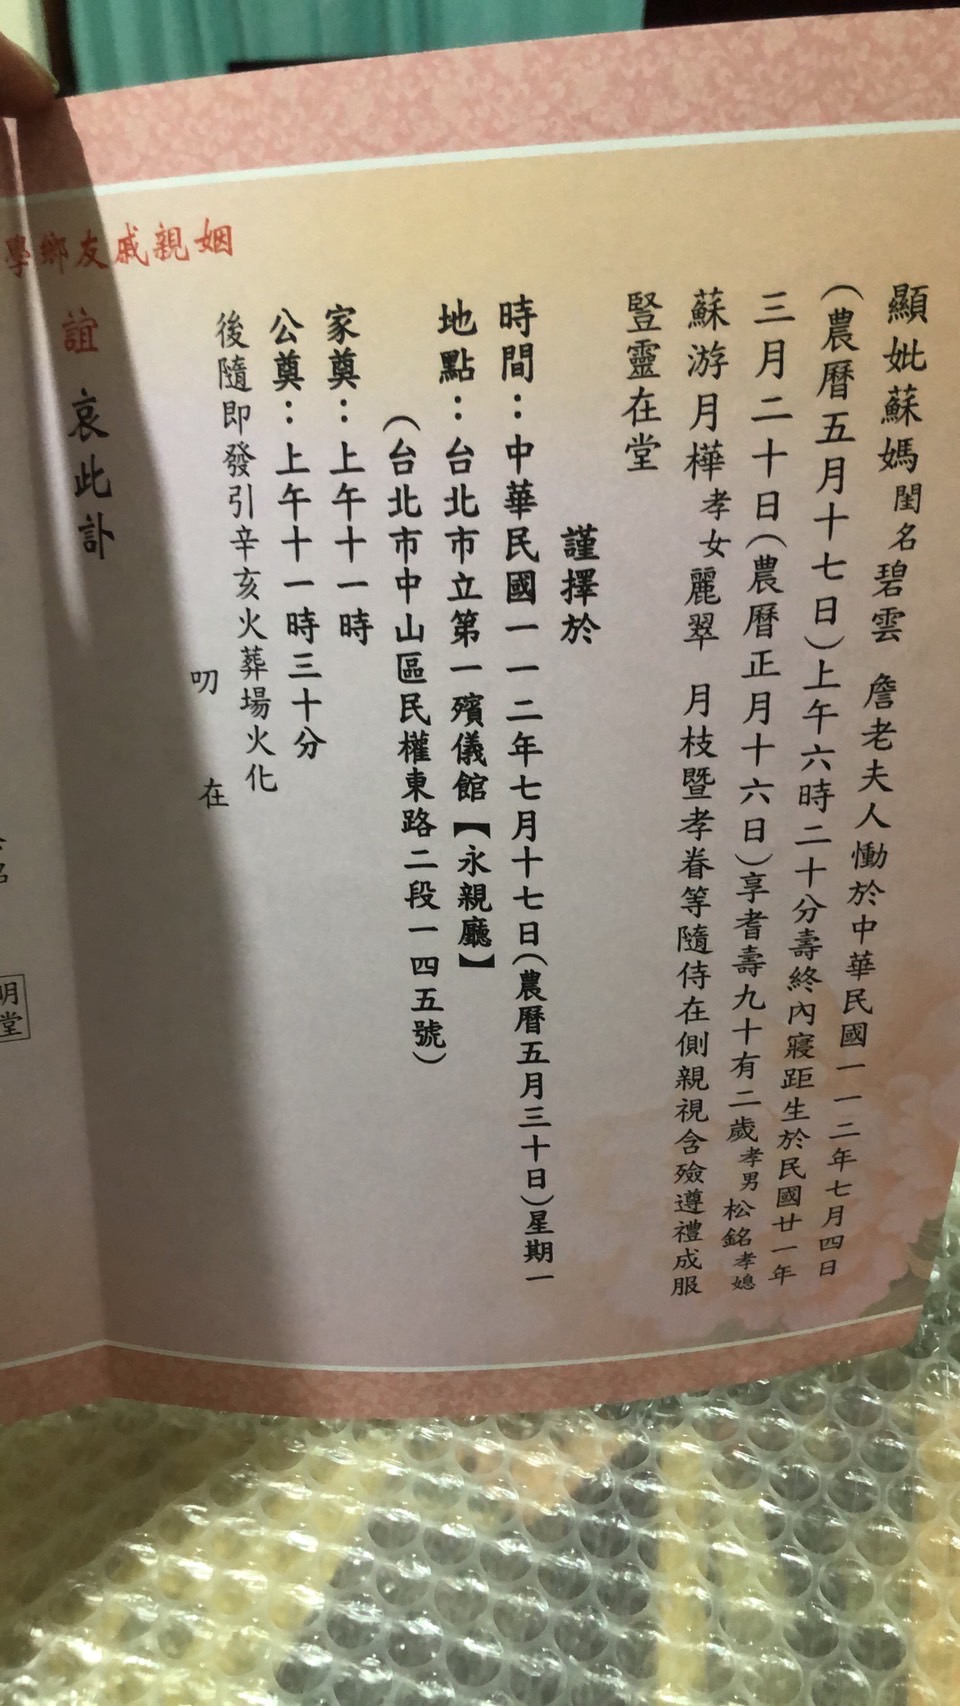 顯妣蘇媽閨名碧雲 詹老夫人慟於中華民國一一二年七月四日
（農曆五月十七日）上午六時二十分壽終內寢距生於民國廿一年
三月二十日（農曆正月十六日）享耆壽九十有二歲孝男松銘孝媳
蘇游月樺孝女麗翠 月枝暨孝眷等隨侍在側親視含殮遵禮成服
豎靈在堂
謹擇於
時間：中華民國一一二年七月十七日（農曆五月三十日）星期一
地點：台北市立第一殯儀館【永親廳】
（台北市中山區民權東路二段一四五號）
家奠：上午十一時
公奠：上午十一時三十分
後隨即發引辛亥火葬場火化
叨 在
姻親戚友鄉學
誼 哀此訃
明堂